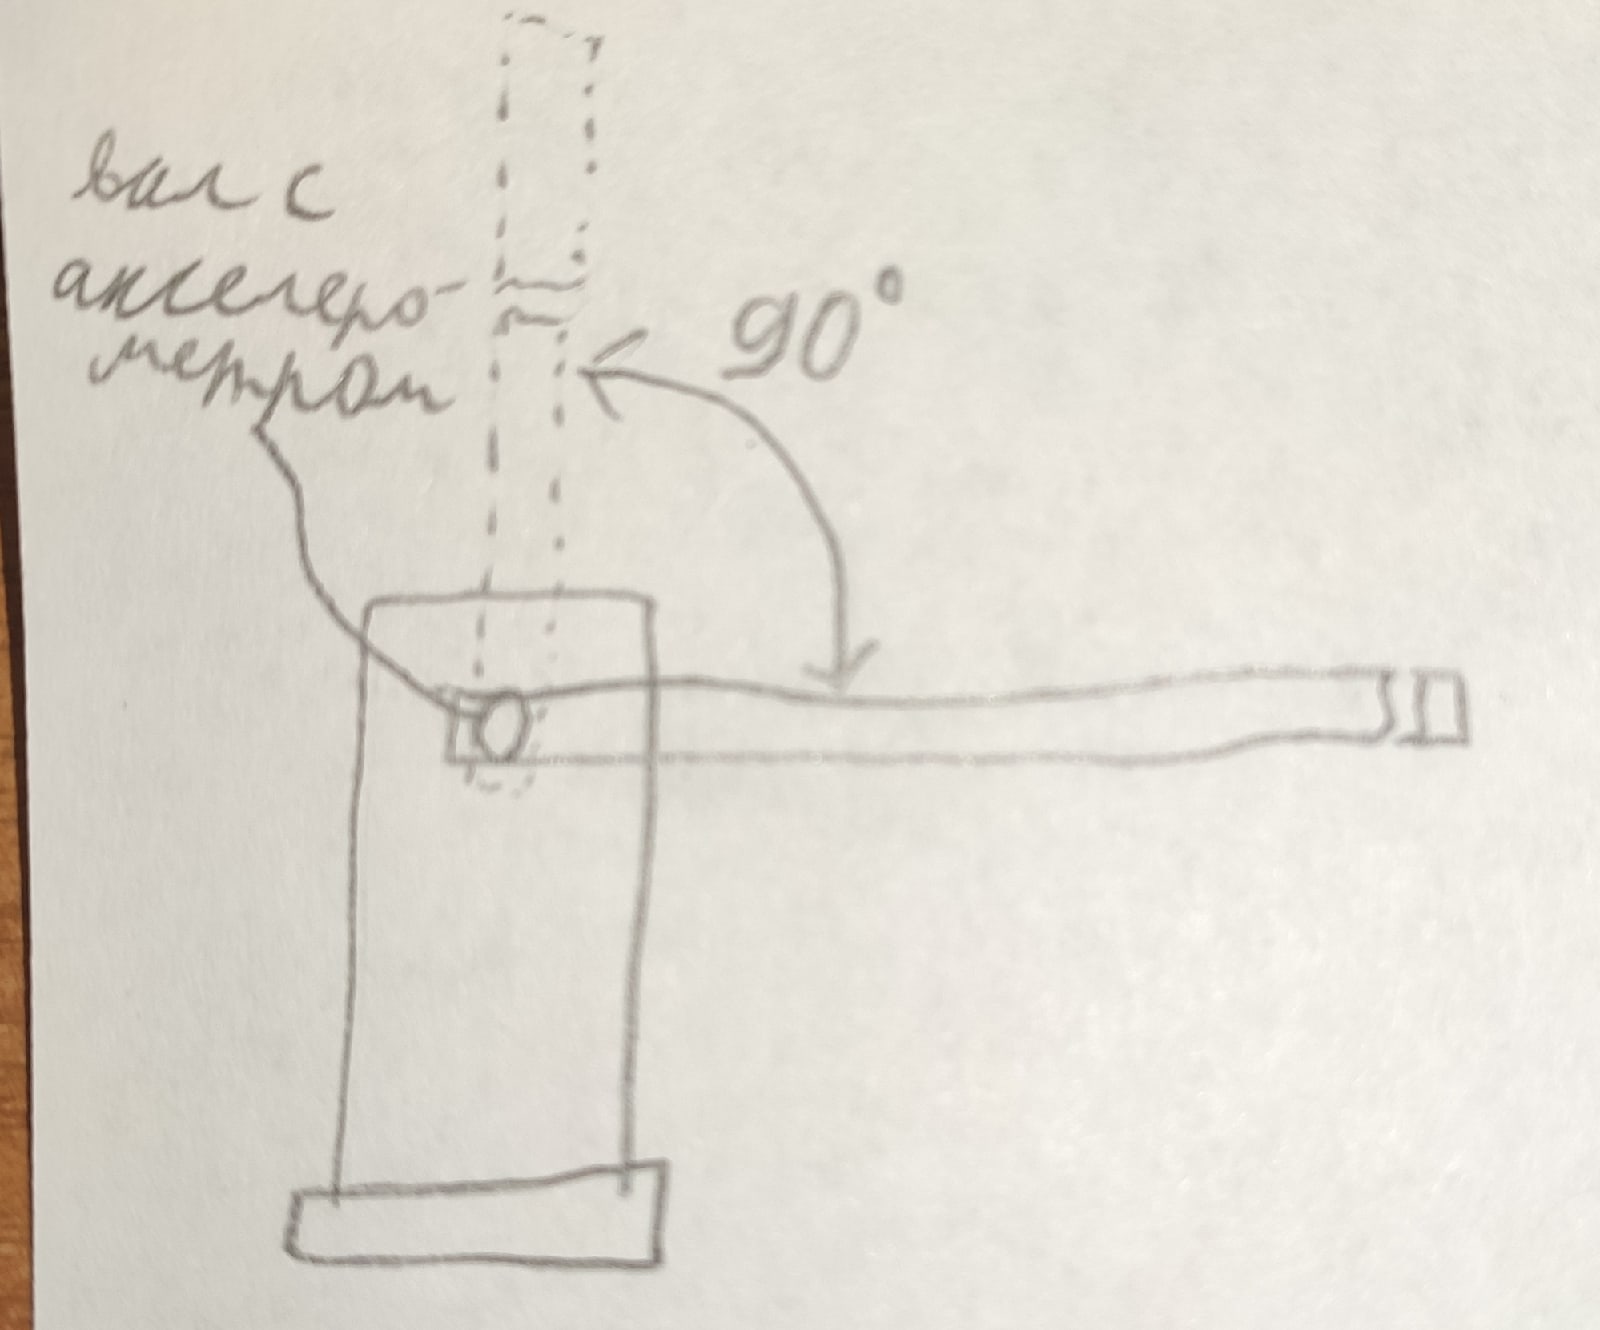 вал с
акселеро-
метром
90°